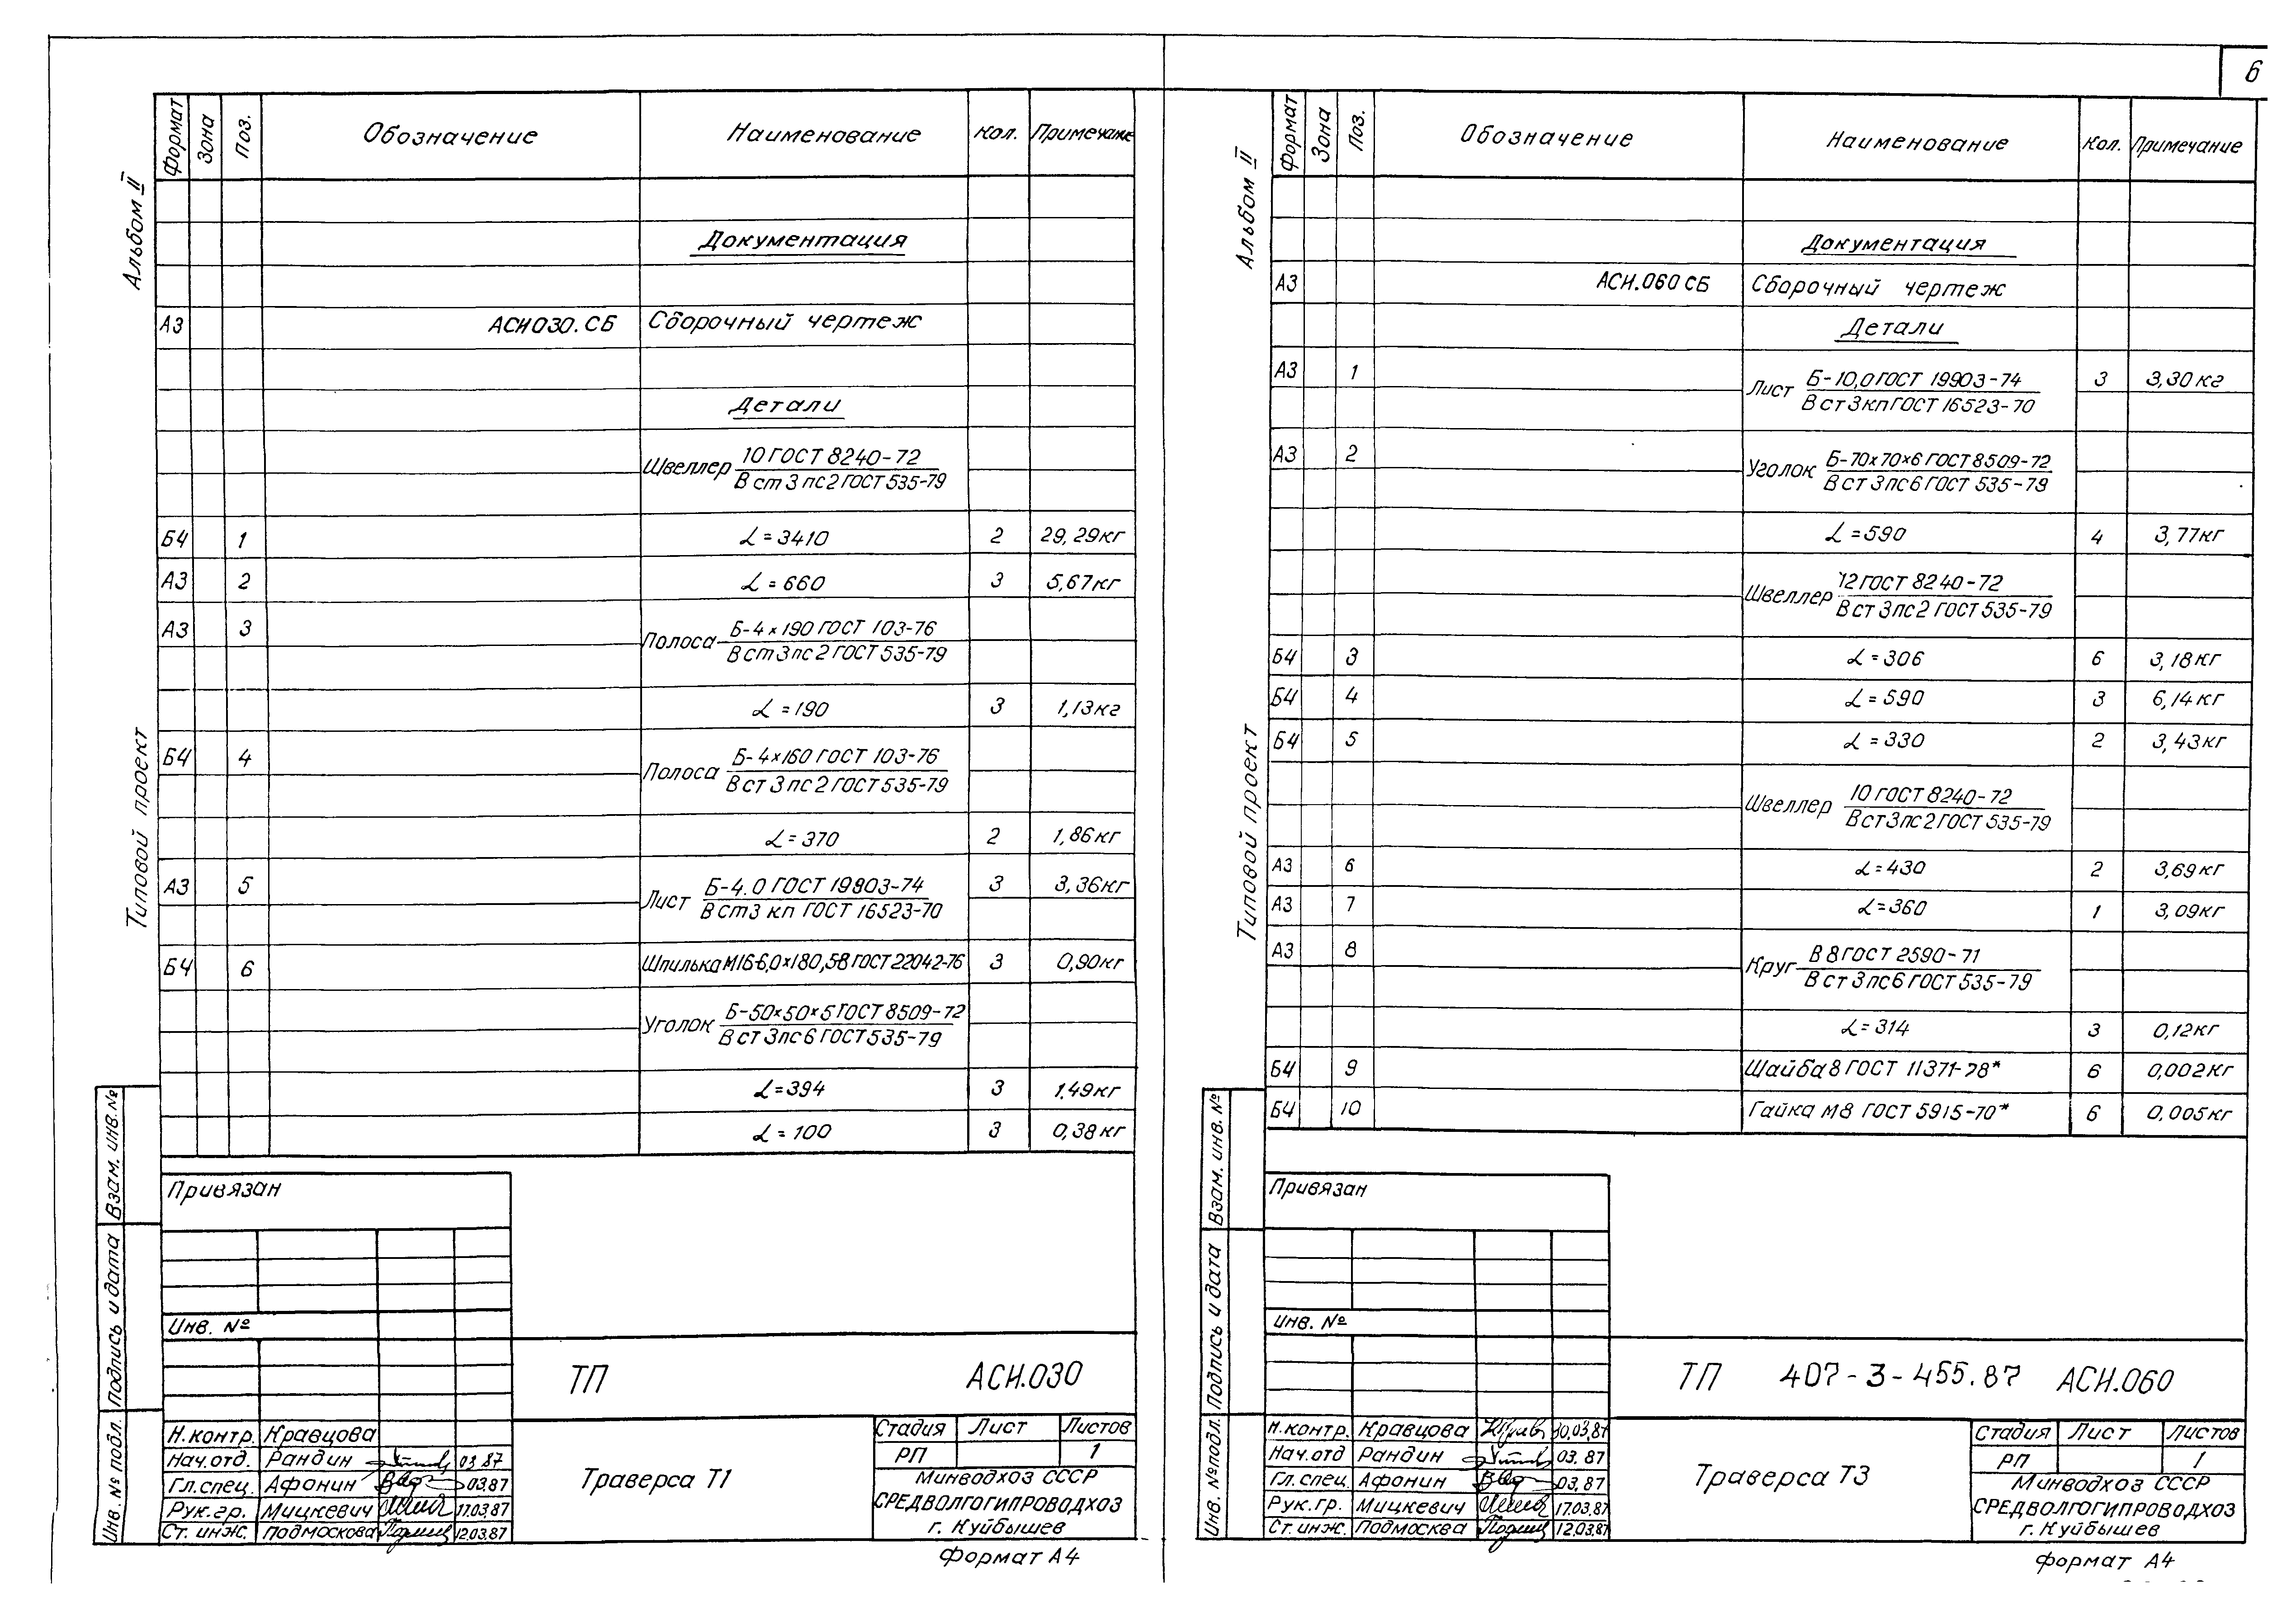 6
Альбом II
Типовой проект
Формат Зона Поз. Обозначение Наименование Кол. Примечание
Документация
А3 АСИ030.СБ Сборочный чертеж
Детали
Швеллер 10 ГОСТ 8240-72
В ст 3 пс 2 ГОСТ 535-79
Б4 1 L = 3410 2 29,29кг
А3 2 L = 660 3 5,67кг
А3 3 Полоса Б-4×190 ГОСТ 103-76
В ст 3 пс 2 ГОСТ 535-79
L = 190 3 1,13кг
Б4 4 Полоса Б-4×160 ГОСТ 103-76
В ст 3 пс 2 ГОСТ 535-79
L = 370 2 1,86кг
А3 5 Лист Б-4.0 ГОСТ 19803-74 3 3,36кг
В ст3 кп ГОСТ 16523-70
Б4 6 Шпилька М16-6,0×180,58 ГОСТ 22042-76 3 0,90кг
Уголок Б-50×50×5 ГОСТ 8509-72
В ст 3пс 6 ГОСТ 535-79
L=394 3 1.49кг
L = 100 3 0,38кг
Привязан
Инв. №
Взам. инв. №
Подпись и дата
Инв. № подл.
ТП АСИ.030
Н.контр. Кравцова
Нач.отд. Рандин 03.87
Гл.спец. Афонин 03.87
Рук.гр. Мицкевич 17.03.87
Ст. инж. Подмоскова 12.03.87
Траверса Т1
Стадия Лист Листов
РП 1
Минводхоз СССР
СРЕДВОЛГОГИПРОВОДХОЗ
г. Куйбышев
Формат А4
Альбом II
Типовой проект
Формат Зона Поз. Обозначение Наименование Кол. Примечание
Документация
А3 АСИ.060 СБ Сборочный чертеж
Детали
А3 1 Лист Б-10,0 ГОСТ 19903-74 3 3,30кг
В ст 3кп ГОСТ 16523-70
А3 2 Уголок Б-70×70×6 ГОСТ 8509-72
В ст 3пс 6 ГОСТ 535-79
L = 590 4 3,77кг
Швеллер 12 ГОСТ 8240-72
В ст 3пс 2 ГОСТ 535-79
Б4 3 L = 306 6 3,18кг
Б4 4 L = 590 3 6,14кг
Б4 5 L = 330 2 3,43кг
Швеллер 10 ГОСТ 8240-72
В ст 3пс 2 ГОСТ 535-79
А3 6 L=430 2 3,69кг
А3 7 L=360 1 3,09кг
А3 8 Круг В 8 ГОСТ 2590-71
В ст 3 пс 6 ГОСТ 535-79
L= 314 3 0,12кг
Б4 9 Шайба 8 ГОСТ 11371-78* 6 0,002кг
Б4 10 Гайка М8 ГОСТ 5915-70* 6 0,005кг
Привязан
Инв. №
Взам. инв. №
Подпись и дата
Инв. № подл.
ТП 407-3-455.87 АСИ.060
Н.контр. Кравцова 10.03.87
Нач.отд Рандин 03.87
Гл.спец. Афонин 03.87
Рук.гр. Мицкевич 17.03.87
Ст. инж. Подмосква 12.03.87
Траверса Т3
Стадия Лист Листов
РП 1
Минводхоз СССР
СРЕДВОЛГОГИПРОВОДХОЗ
г. Куйбышев
Формат А4